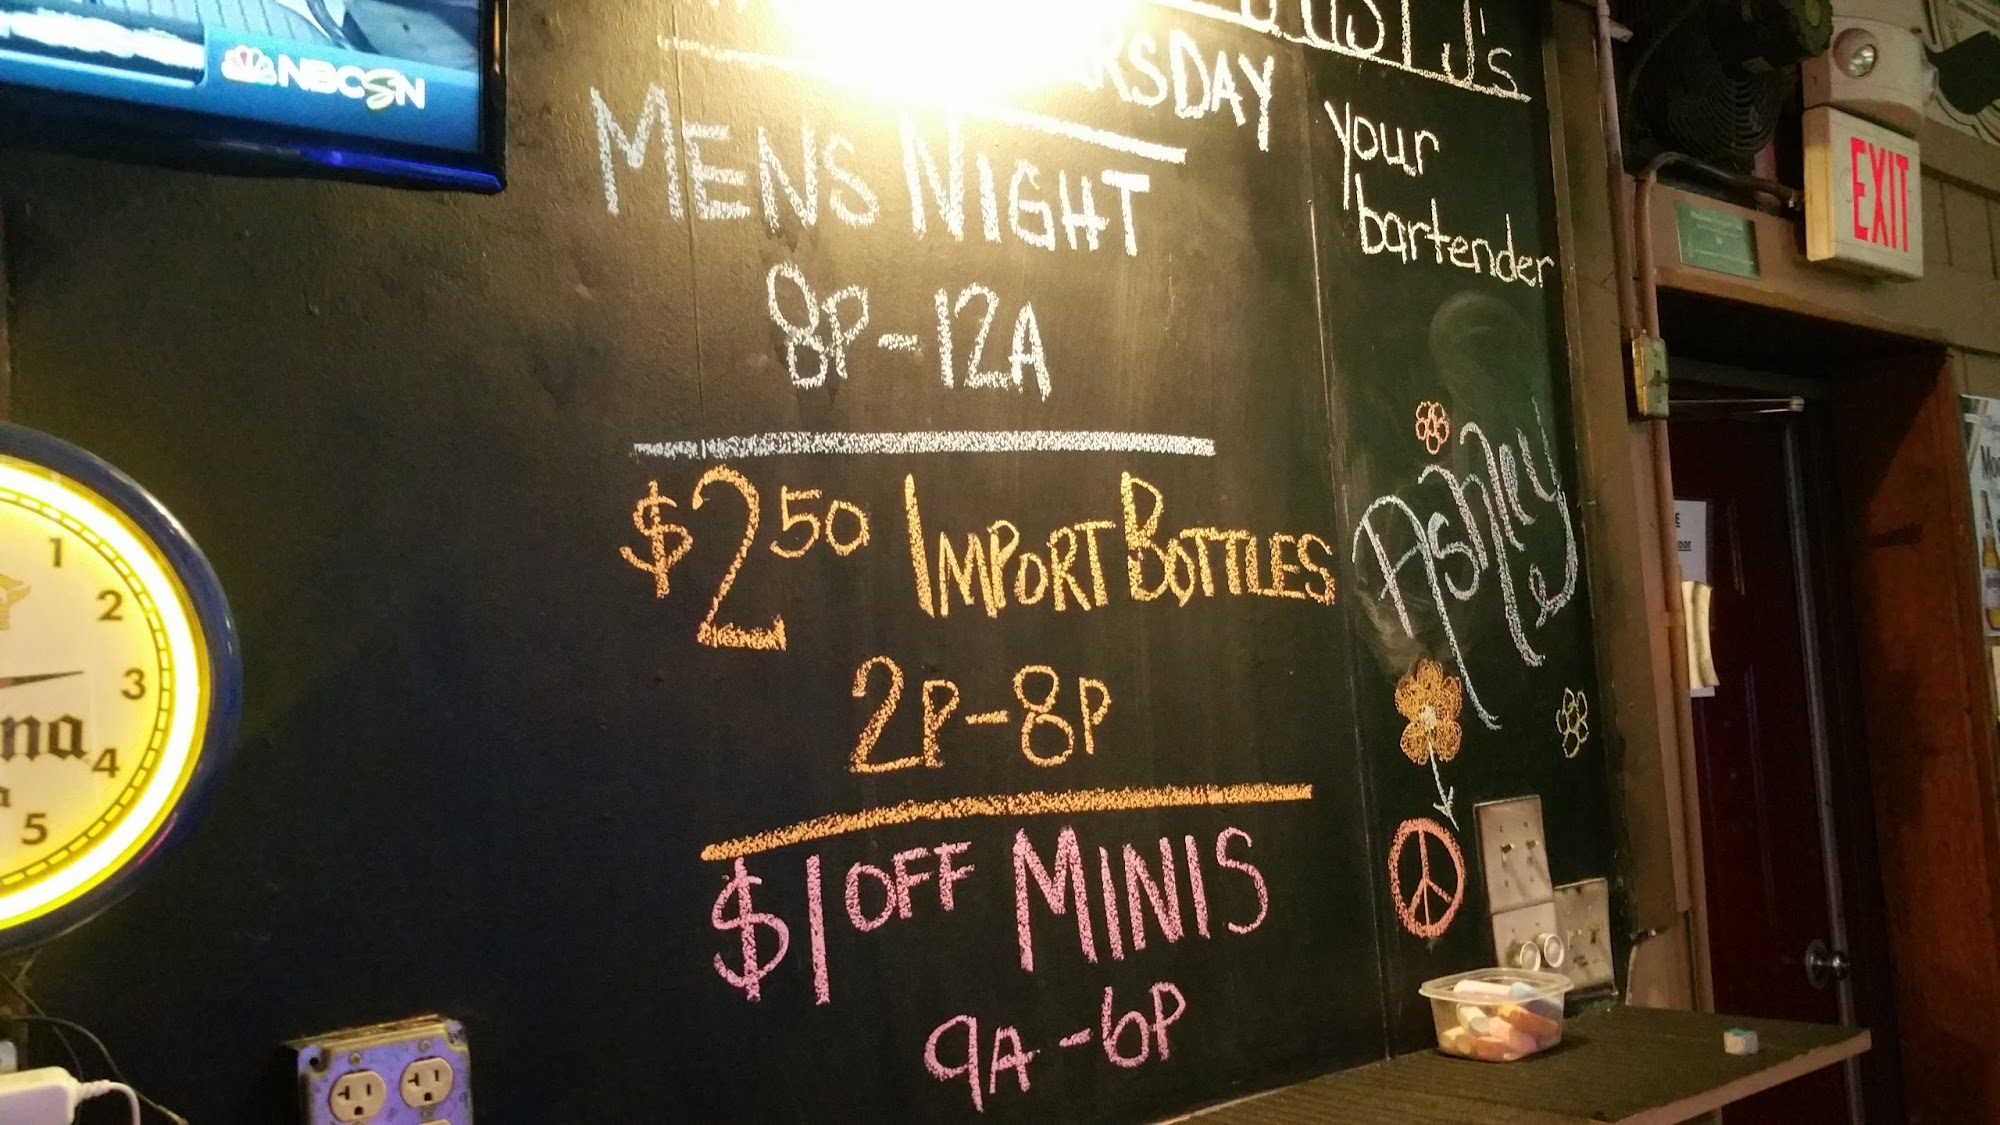 NBCSN
J's
MENS NIGHT
8P-12A
$2.50 IMPORT BOTTLES
2P-8P
$1 OFF MINIS
9A-6P
your
bartender
Ashley
EXIT
1
2
3
4
5